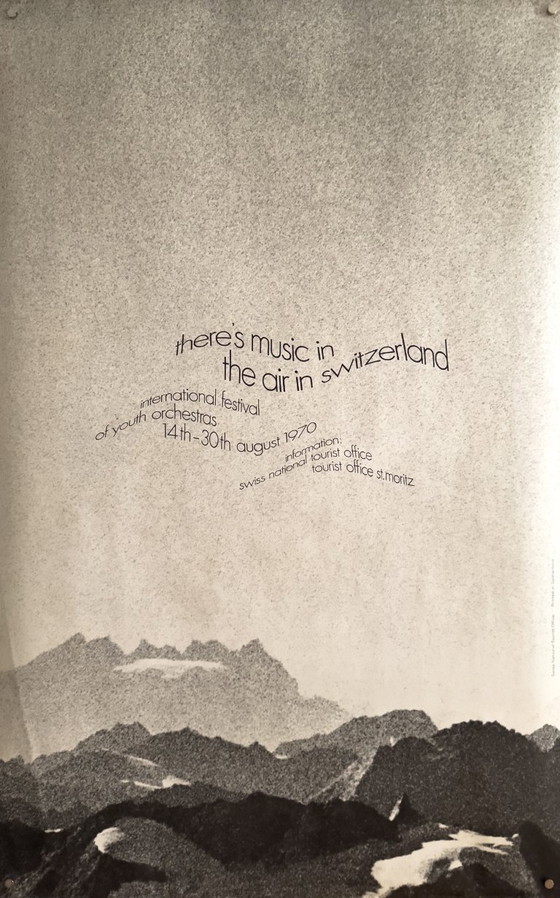 there's music in
the air in switzerland
international festival
of youth orchestras
14th-30th august 1970
information:
swiss national tourist office
tourist office st.moritz